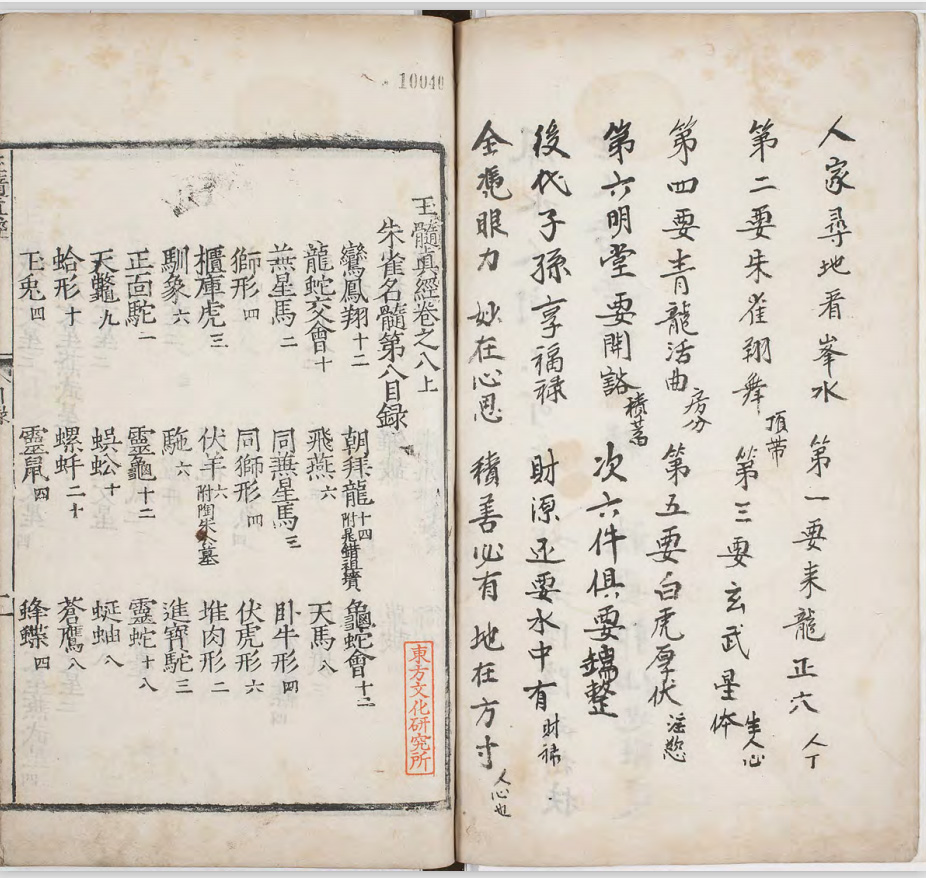 人家尋地看峯水 第一要来龍正穴 人丁
第二要朱雀翔舞 頂带 第三要玄武星体 生人心
第四要青龍活曲 房分 第五要白虎厚伏 淫慾
第六明堂要開谽 積蓄 次六件俱要端整
後代子孫享福禄 財源还要水中有 財禄
全凴眼力妙在心思 積善必有地在方寸 人心也
10040
玉髓真經卷之八上
朱雀名髓第八目録
鸞鳳翔十二 朝拜龍十四 附晁錯祖墳 龜蛇會十二
龍蛇交會十 飛燕六 天馬八
燕星馬二 同燕星馬三 卧牛形四
獅形四 同獅形四 伏虎形六
櫃庫虎三 伏羊六 附陶朱公墓 堆肉形二
馴象六 駞六 進寳駝三
正面駝一 靈龜十二 靈蛇十八
天鼈九 蜈蚣十 蜒蚰八
蛤形十 螺蚌二十 蒼鷹八
玉兎四 靈鼠四 蜂蝶四
東方文化研究所